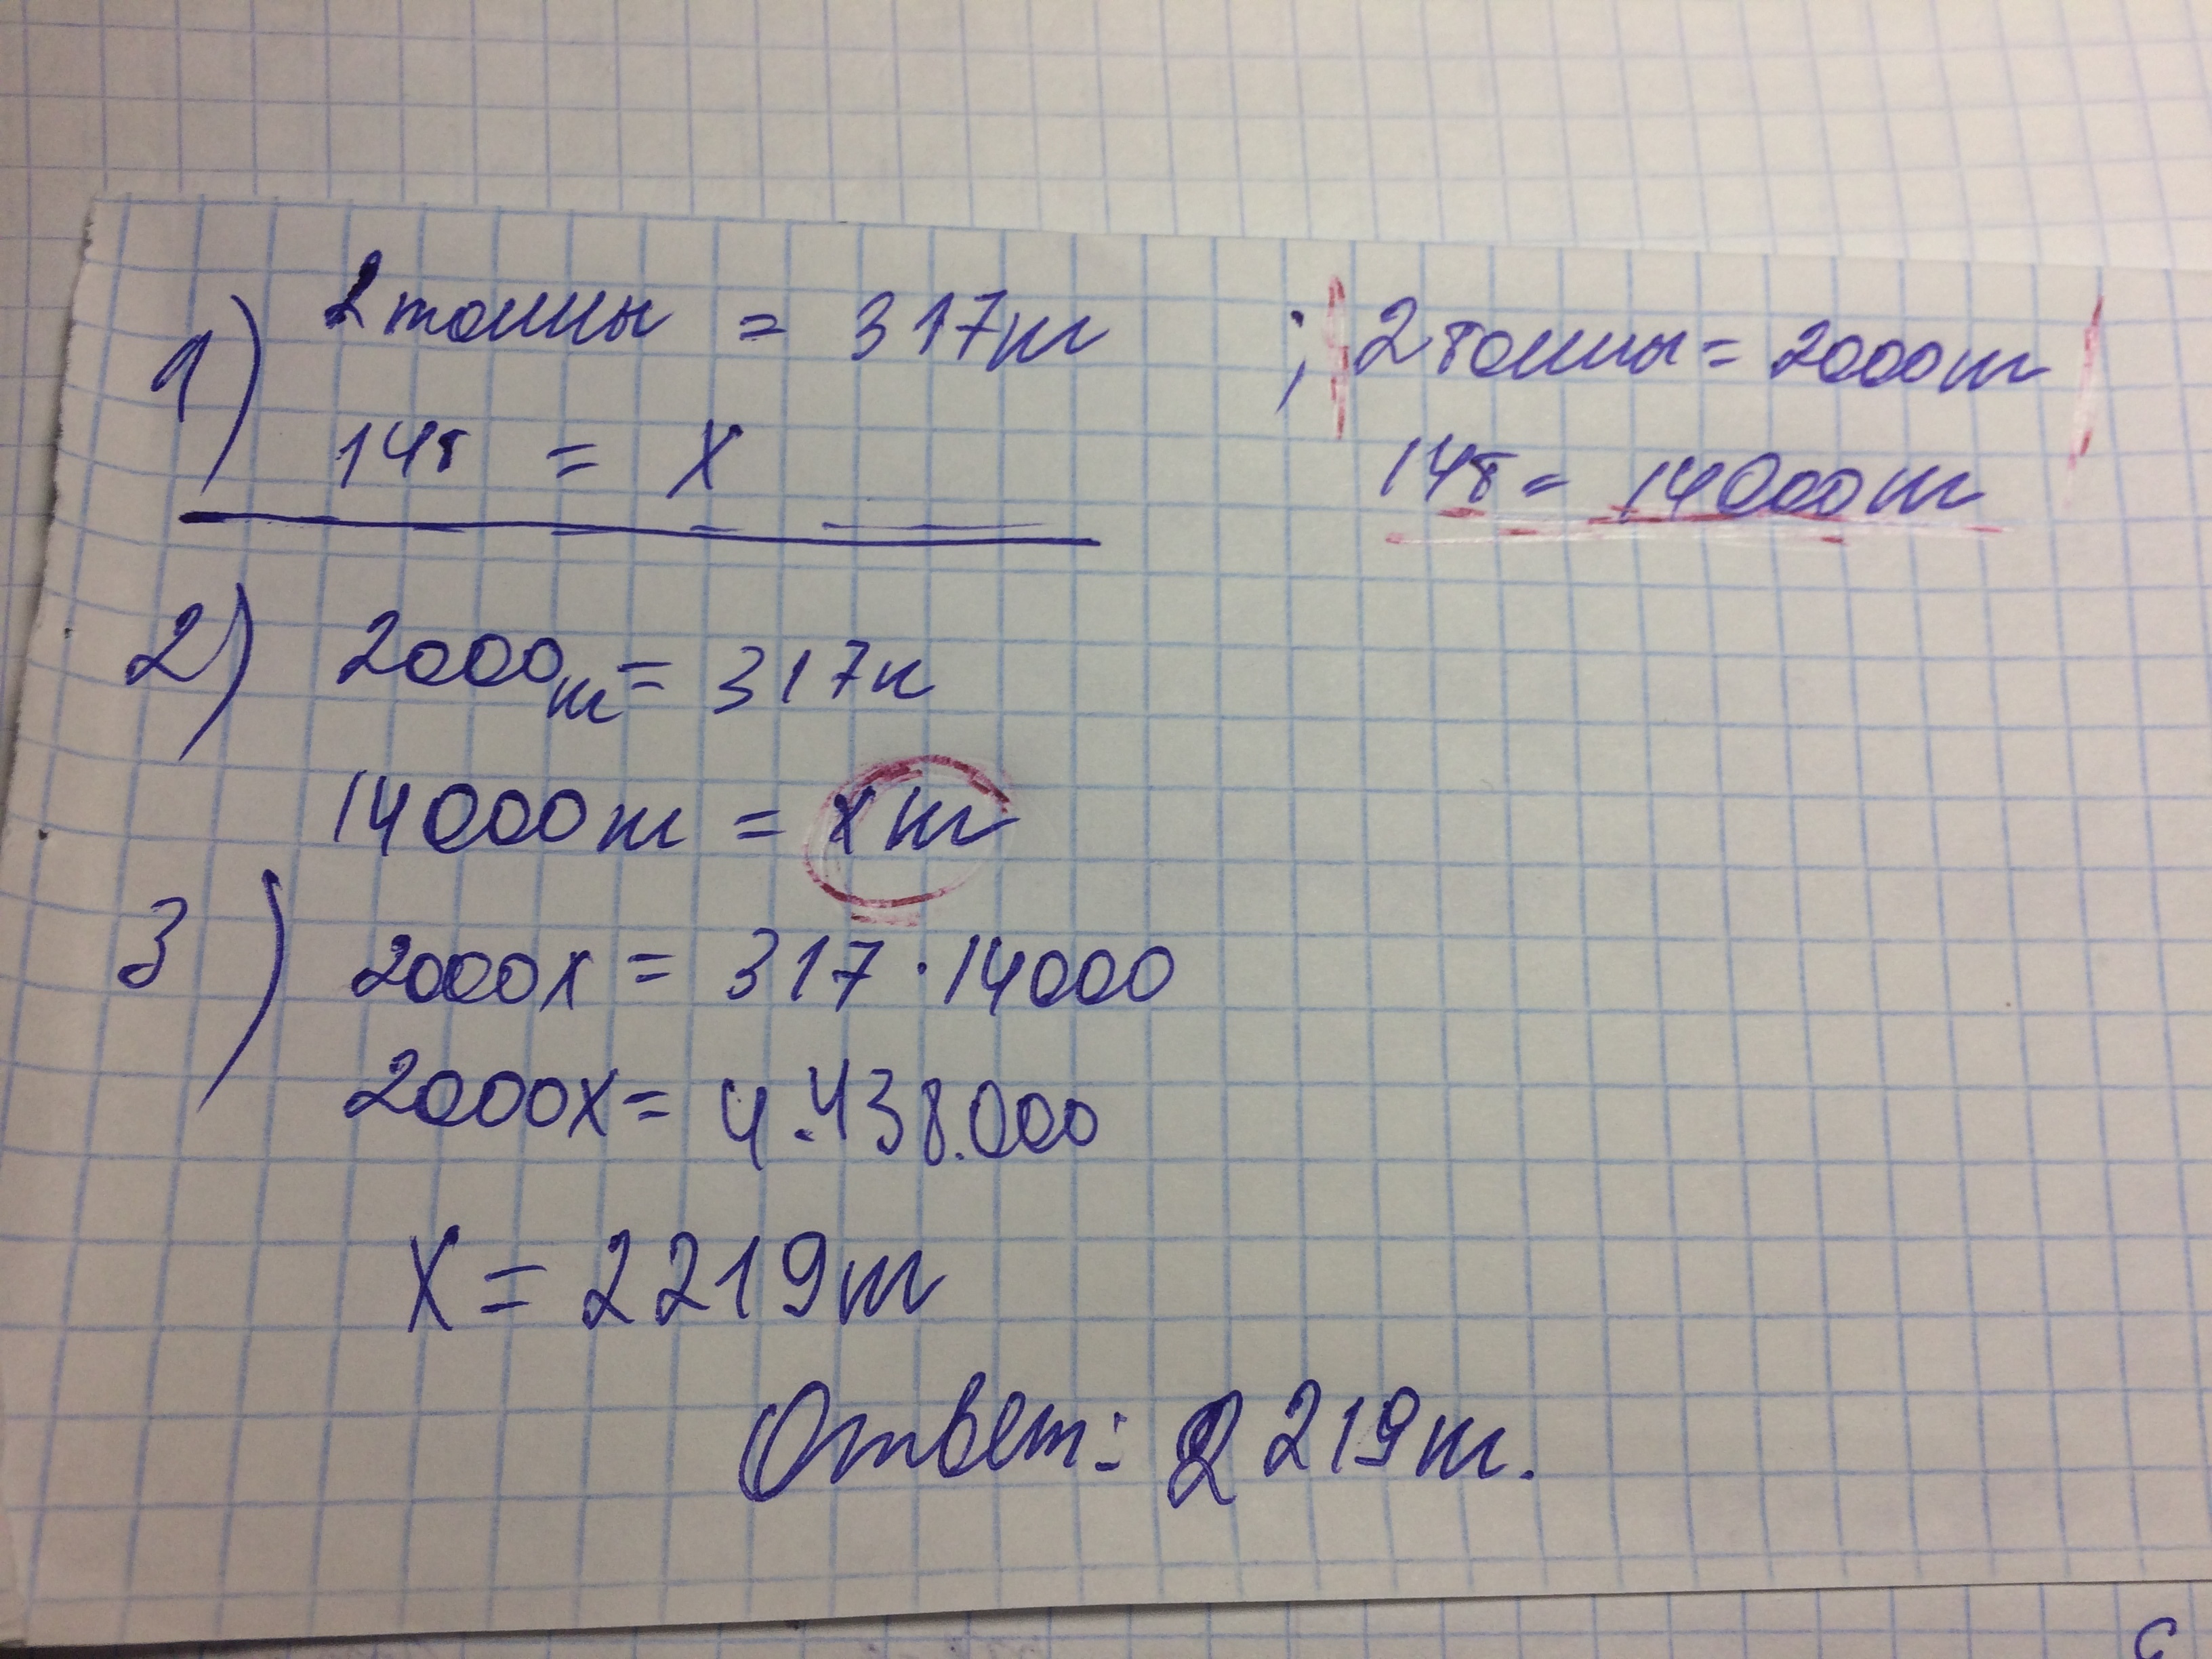 1) 2 тонны = 317 кг ; 2 тонны = 2000 кг
14т = х 14т = 14000 кг
2) 2000 кг = 317 к
14000 кг = х кг
3) 2000х = 317 · 14000
2000х = 4.438.000
х = 2219 кг
Ответ: 2219 кг.